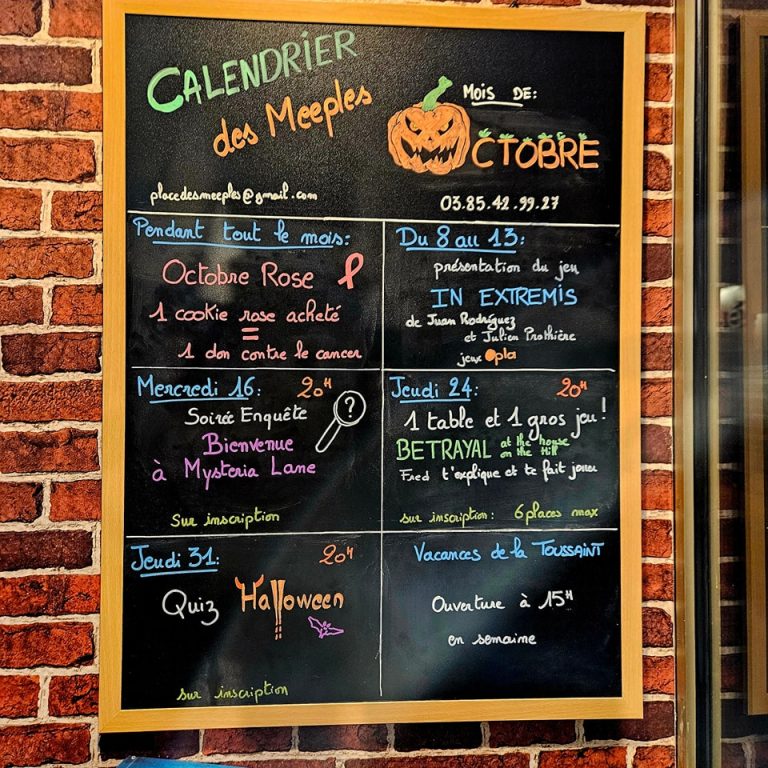 CALENDRIER
des Meeples
Mois DE:
OCTOBRE
placedesmeeples@gmail.com
03.85.42.99.27
Pendant tout le mois:
Octobre Rose
1 cookie rose acheté
=
1 don contre le cancer
Du 8 au 13:
présentation du jeu
IN EXTREMIS
de Juan Rodríguez
et Julien Prothière
jeux Opla
Mercredi 16: 20H
Soirée Enquête
?
Bienvenue
à Mysteria Lane
sur inscription
Jeudi 24: 20H
1 table et 1 gros jeu!
BETRAYAL at the house
on the Hill
Fred t'explique et te fait jouer
sur inscription: 6 places max
Jeudi 31: 20H
Quiz Halloween
sur inscription
Vacances de la TOUSSAINT
Ouverture à 15H
en semaine